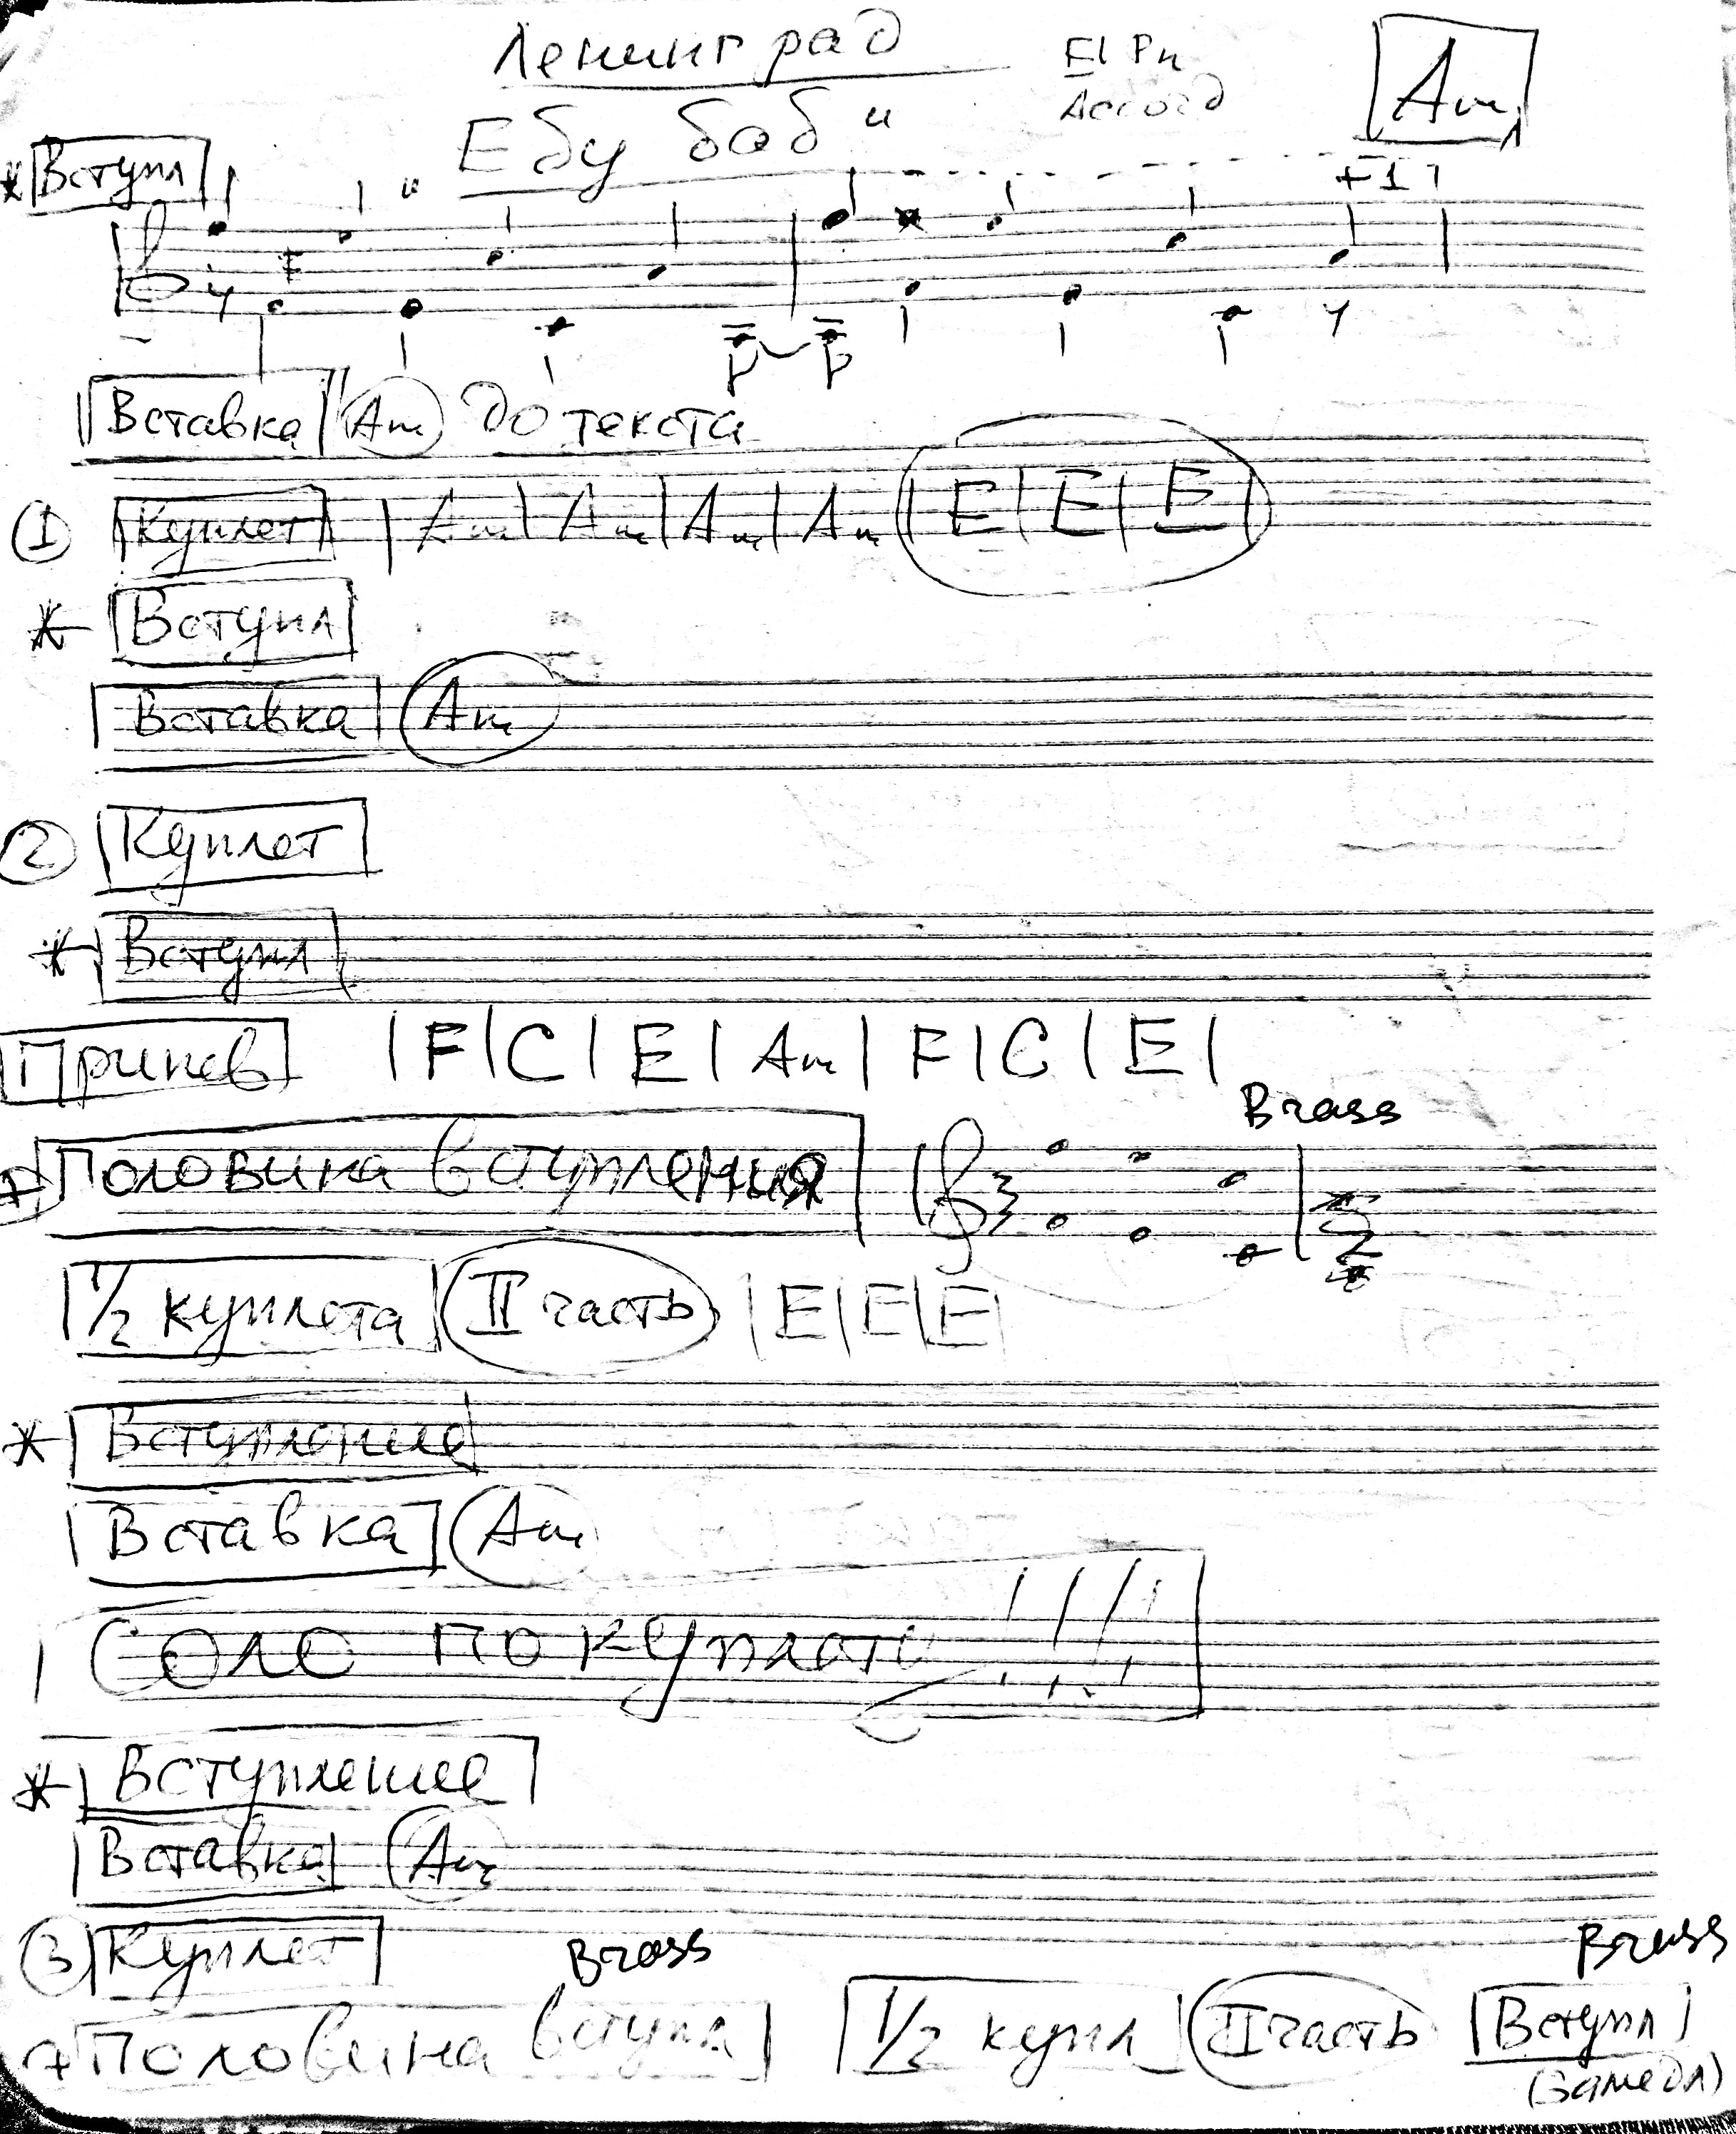 Ленинград
El Pn
Accord
Am
"Ебу баб"
* Вступл
Вставка Am до текста
① Куплет | Am | Am | Am | Am | E | E | E |
* Вступл
Вставка Am
② Куплет
* Вступл
Припев | F | C | E | Am | F | C | E |
Brass
Половина вступления
1/2 куплета II часть | E | E | E |
* Вступление
Вставка Am
Соло по куплету !!!!
* Вступление
Вставка Am
③ Куплет
Brass Brass
Половина вступл 1/2 купл II часть Вступл
(замедл)